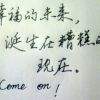 幸福的未来,
诞生在糟糕的
现在。
Come on!